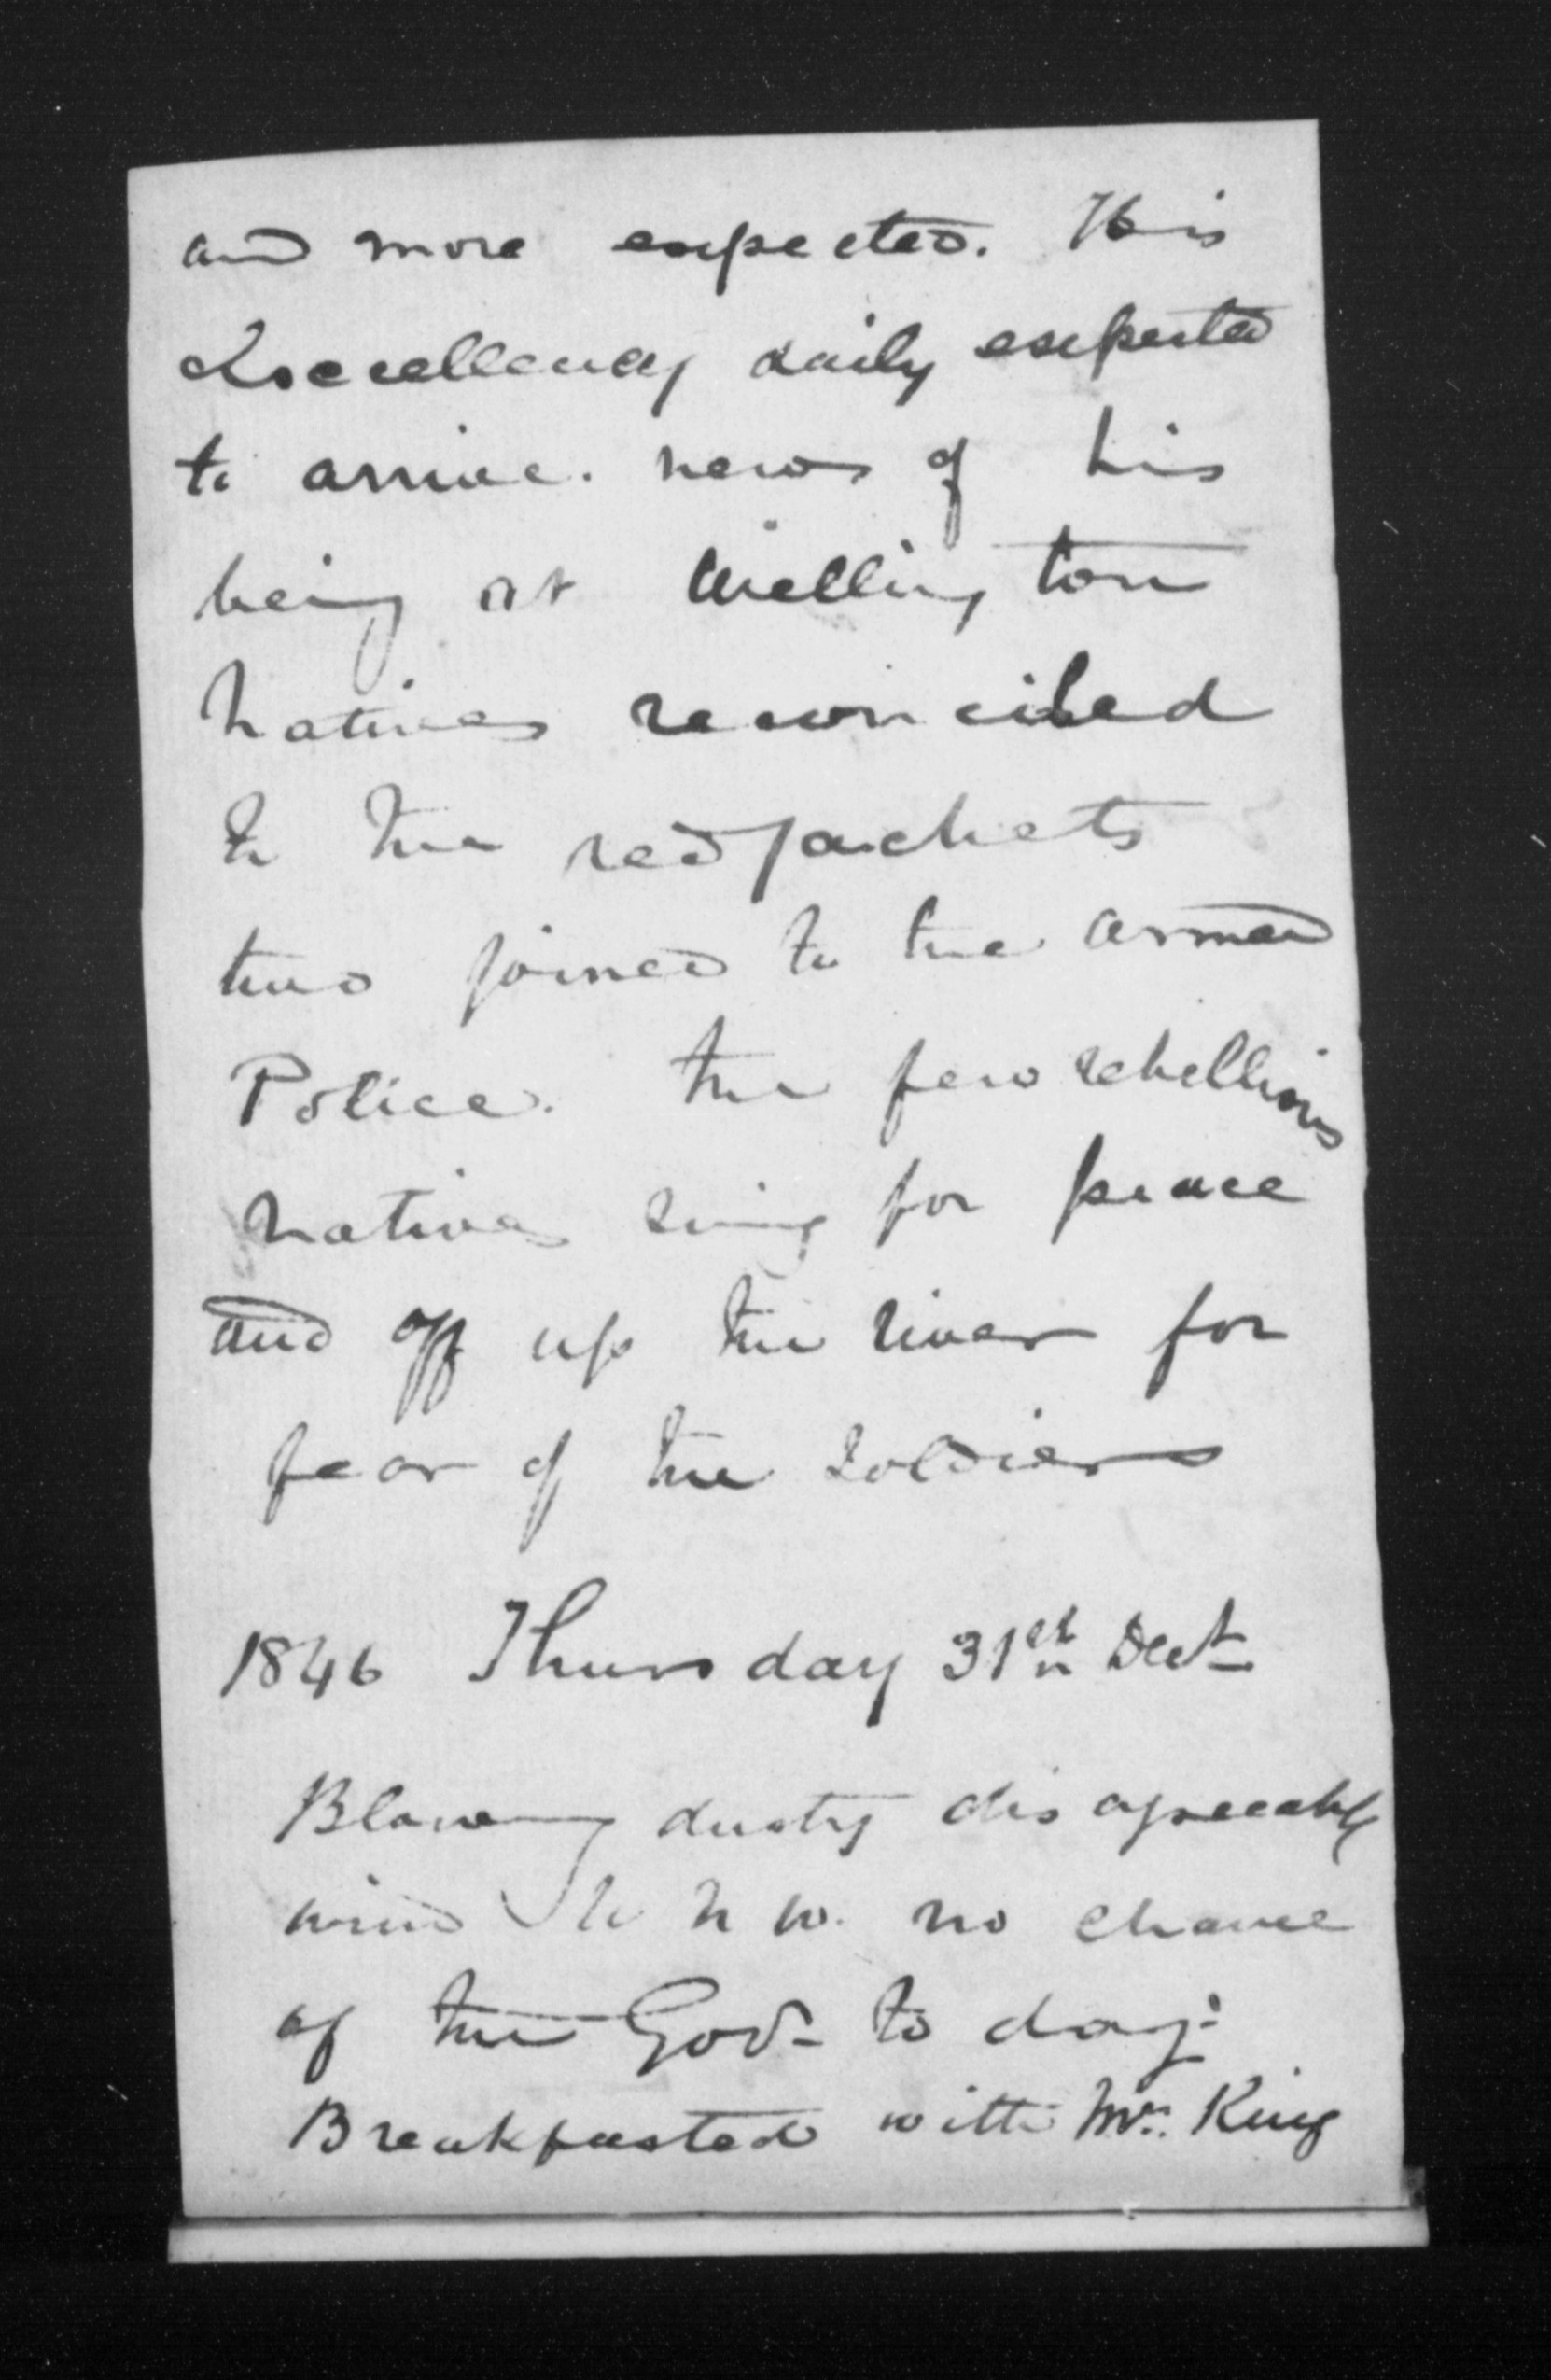 and more expected. His
Excellency daily expected
to arrive. news of his
being at Wellington
natives reconciled
to the red jackets
two joined to the armed
Police. The few rebellious
natives suing for peace
and off up the river for
fear of the soldiers
1846 Thursday 31st Dect
Blowing dusty disagreeably
wind N W. no chance
of the Govr to day.
Breakfasted with Mr. King